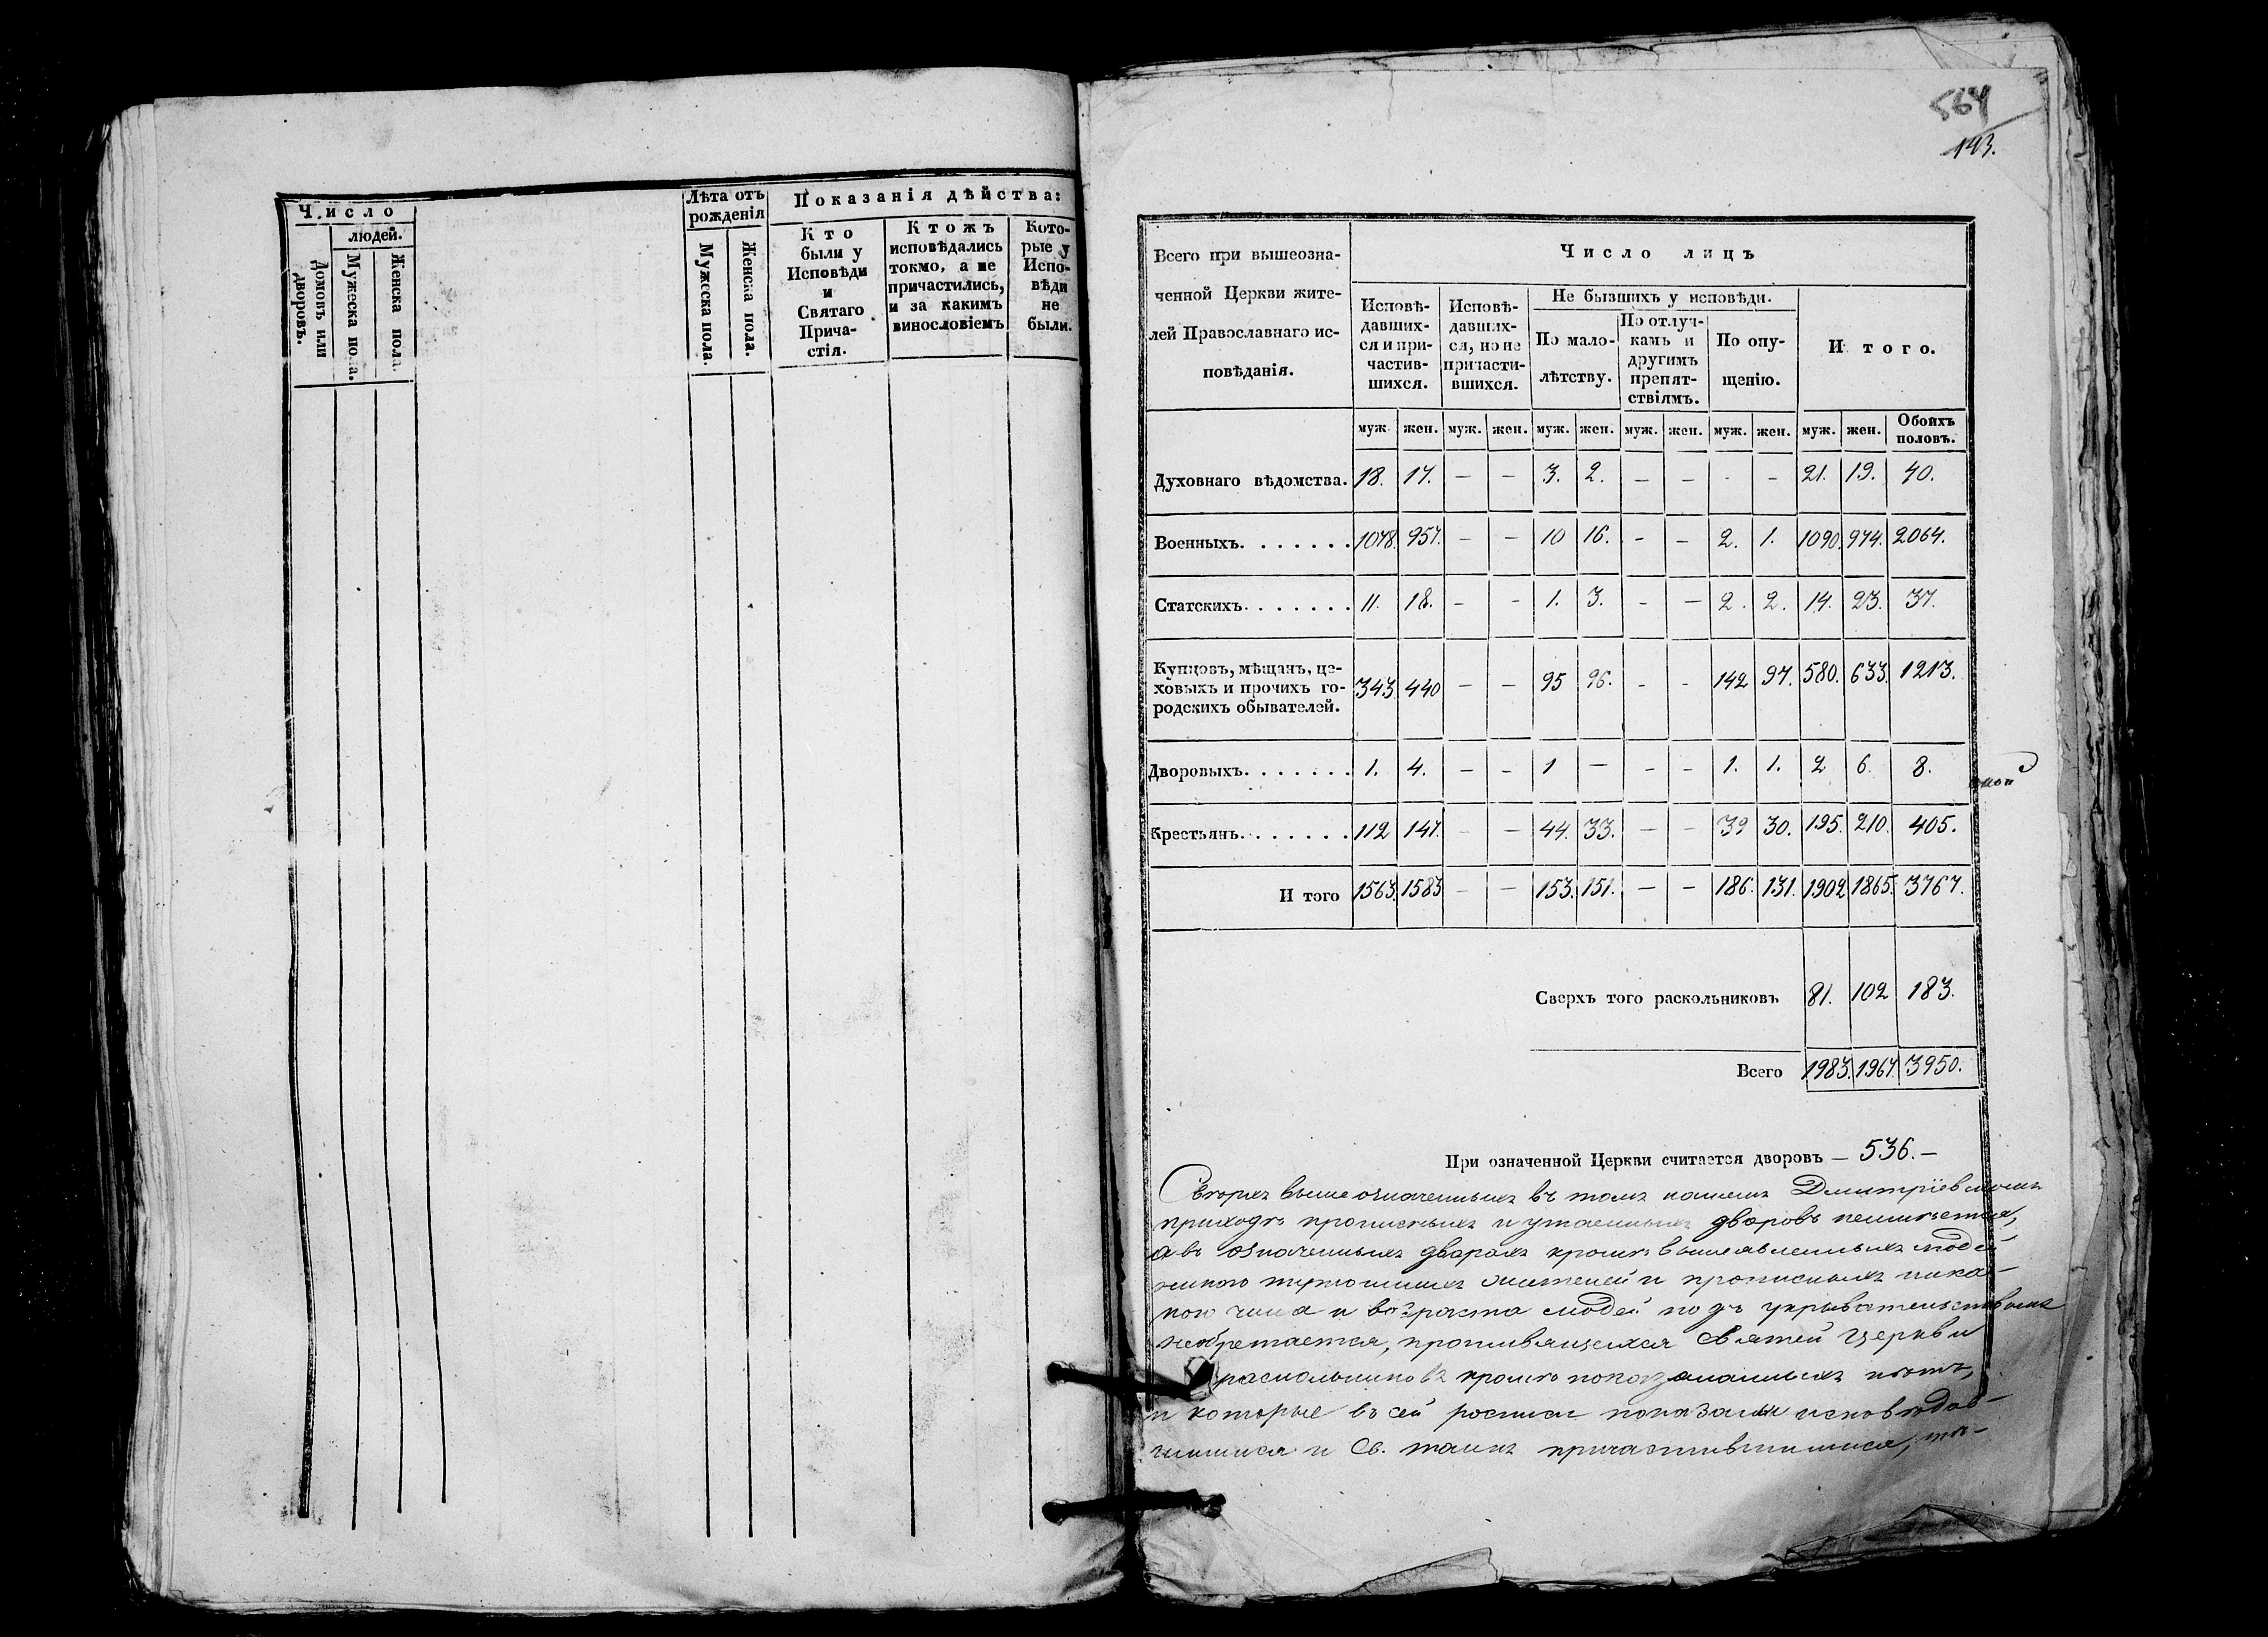 Число
людей.
Домовъ или дворовъ.
Мужеска пола.
Женска пола.
Лѣта отъ рожденія
Мужеска пола.
Женска пола.
Показанія дѣйства:
Кто
были у
Исповѣди
и
Святаго
Прича-
стія.
Ктожъ
исповѣдались
токмо, а не
причастились,
и за какимъ
винословіемъ
Кото-
рые у
Испо-
вѣди
не
были.
564
143.
Всего при вышеозна-
ченной Церкви жите-
лей Православнаго ис-
повѣданія.
Число лицъ
Исповѣ-
давших-
ся и при-
частив-
шихся.
Исповѣ-
давших-
ся, но не
причасти-
вшихся.
Не бывшихъ у исповѣди.
По мало-
лѣтству.
По отлуч-
камъ и
другимъ
препят-
ствіямъ.
По опу-
щенію.
Итого.
муж. жен. муж. жен. муж. жен. муж. жен. муж. жен. муж. жен. Обоихъ половъ.
Духовнаго вѣдомства. 18. 17. — — 3. 2. — — - — 21. 19. 40.
Военныхъ. . . . . . . 1078. 957. — — 10 16. — — 2. 1. 1090. 974. 2064.
Статскихъ. . . . . . . 11. 18. — — 1. 3. — — 2. 2. 14. 23. 37.
Купцовъ, мѣщанъ, це-
ховыхъ и прочихъ го-
родскихъ обывателей.
343 440 — — 95 96. — — 142 97. 580. 633. 1213.
Дворовыхъ. . . . . . . 1. 4. — — 1 — — — 1. 1. 2 6. 8.
Крестьянъ. . . . . . . 112 147. — — 44. 33. — — 39 30. 195. 210. 405.
И того 1563. 1583 — — 153. 151. — — 186. 131. 1902 1865. 3767.
Сверхъ того раскольниковъ 81. 102 183.
Всего 1983. 1967. 3950.
При означенной Церкви считается дворовъ — 536. —
Сверхъ вышеозначенныхъ въ томъ нашемъ Дмитріевскомъ
приходѣ прописныхъ и утаенныхъ дворовъ неимѣется,
а въ означенныхъ дворахъ кромѣ вышеявленныхъ людей
жителей и прописныхъ ника-
кого чина и возраста людей подъ укрывательствомъ
необретается, противящихся Святей Церкви
раскольниковъ кромѣ показанныхъ нѣтъ,
и которые въ сей росписи показаны исповѣдав-
шимися и Св. таинъ причастившимися, тѣ-